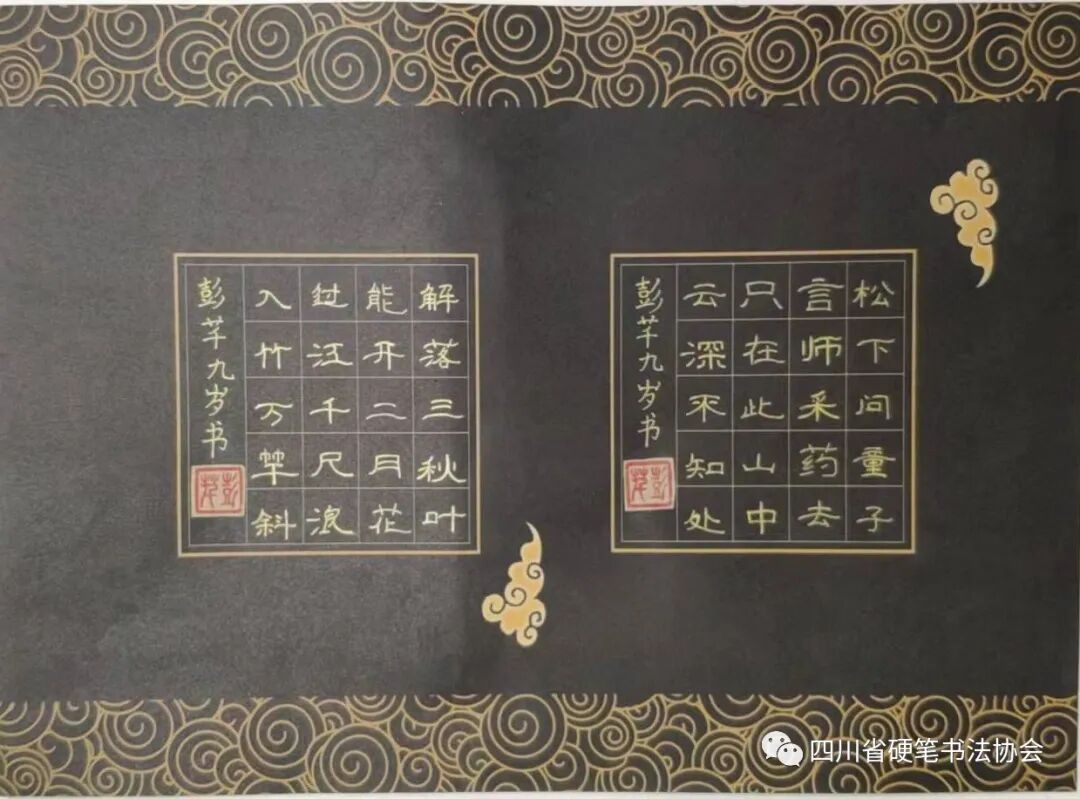 松下问童子
言师采药去
只在此山中
云深不知处
彭芊九岁书
解落三秋叶
能开二月花
过江千尺浪
入竹万竿斜
彭芊九岁书
四川省硬笔书法协会